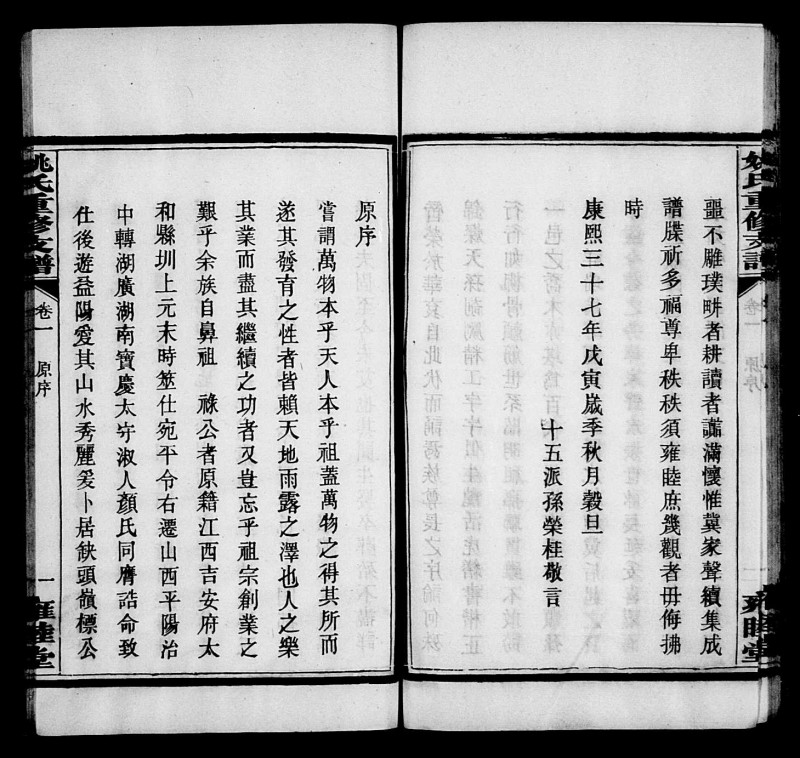 噩不雕璞畊者耕讀者讟滿懷惟冀家聲續集成
譜牒祈多福尊卑秩秩須雍睦庶幾觀者毋侮拂
時
康熙三十七年戊寅歲季秋月穀旦
十五派孫榮桂敬言
姚氏重修支譜
卷一
原序
雍睦堂
姚氏重修支譜
卷一
原序
一
雍睦堂
原序
嘗謂萬物本乎天人本乎祖蓋萬物之得其所而
遂其發育之性者皆賴天地雨露之澤也人之樂
其業而盡其繼續之功者又豈忘乎祖宗創業之
艱乎余族自鼻祖 祿公者原籍江西吉安府太
和縣圳上元末時筮仕宛平令右遷山西平陽治
中轉湖廣湖南寶慶太守淑人顏氏同膺誥命致
仕後遊益陽愛其山水秀麗爰卜居鈌頭嶺標公